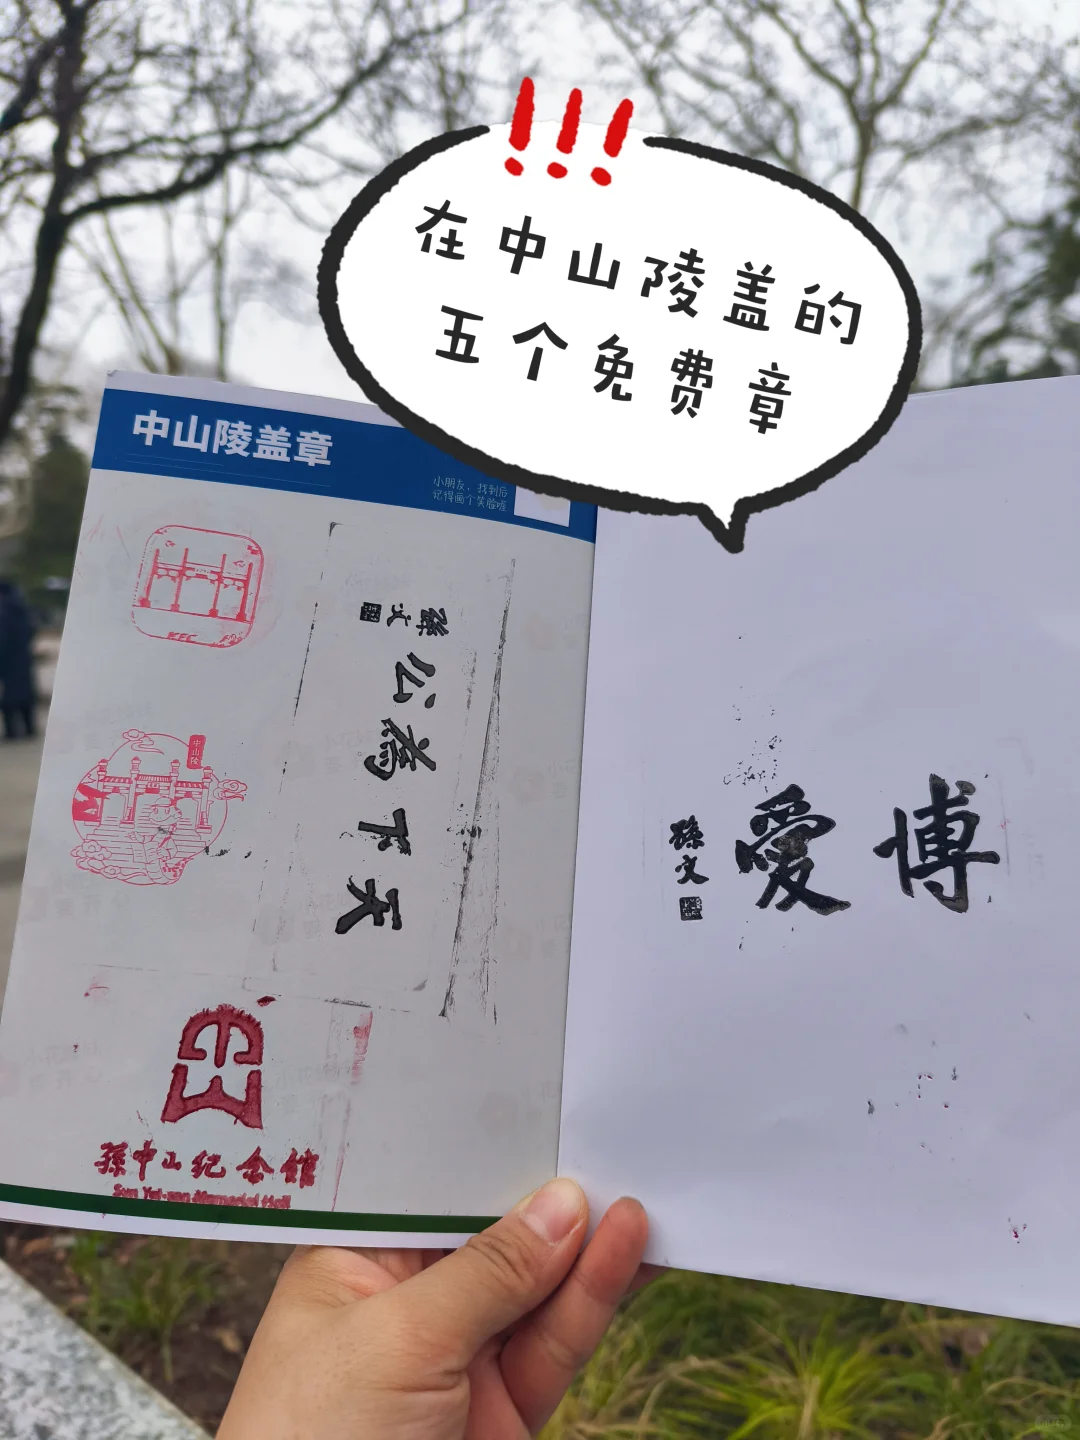 !!!
在中山陵盖的
五个免费章
中山陵盖章
小朋友，找到后
记得画个笑脸哇
KFC
中山陵
天下為公
孫文
孫中山纪念館
Sun Yat-sen Memorial Hall
博愛
孫文